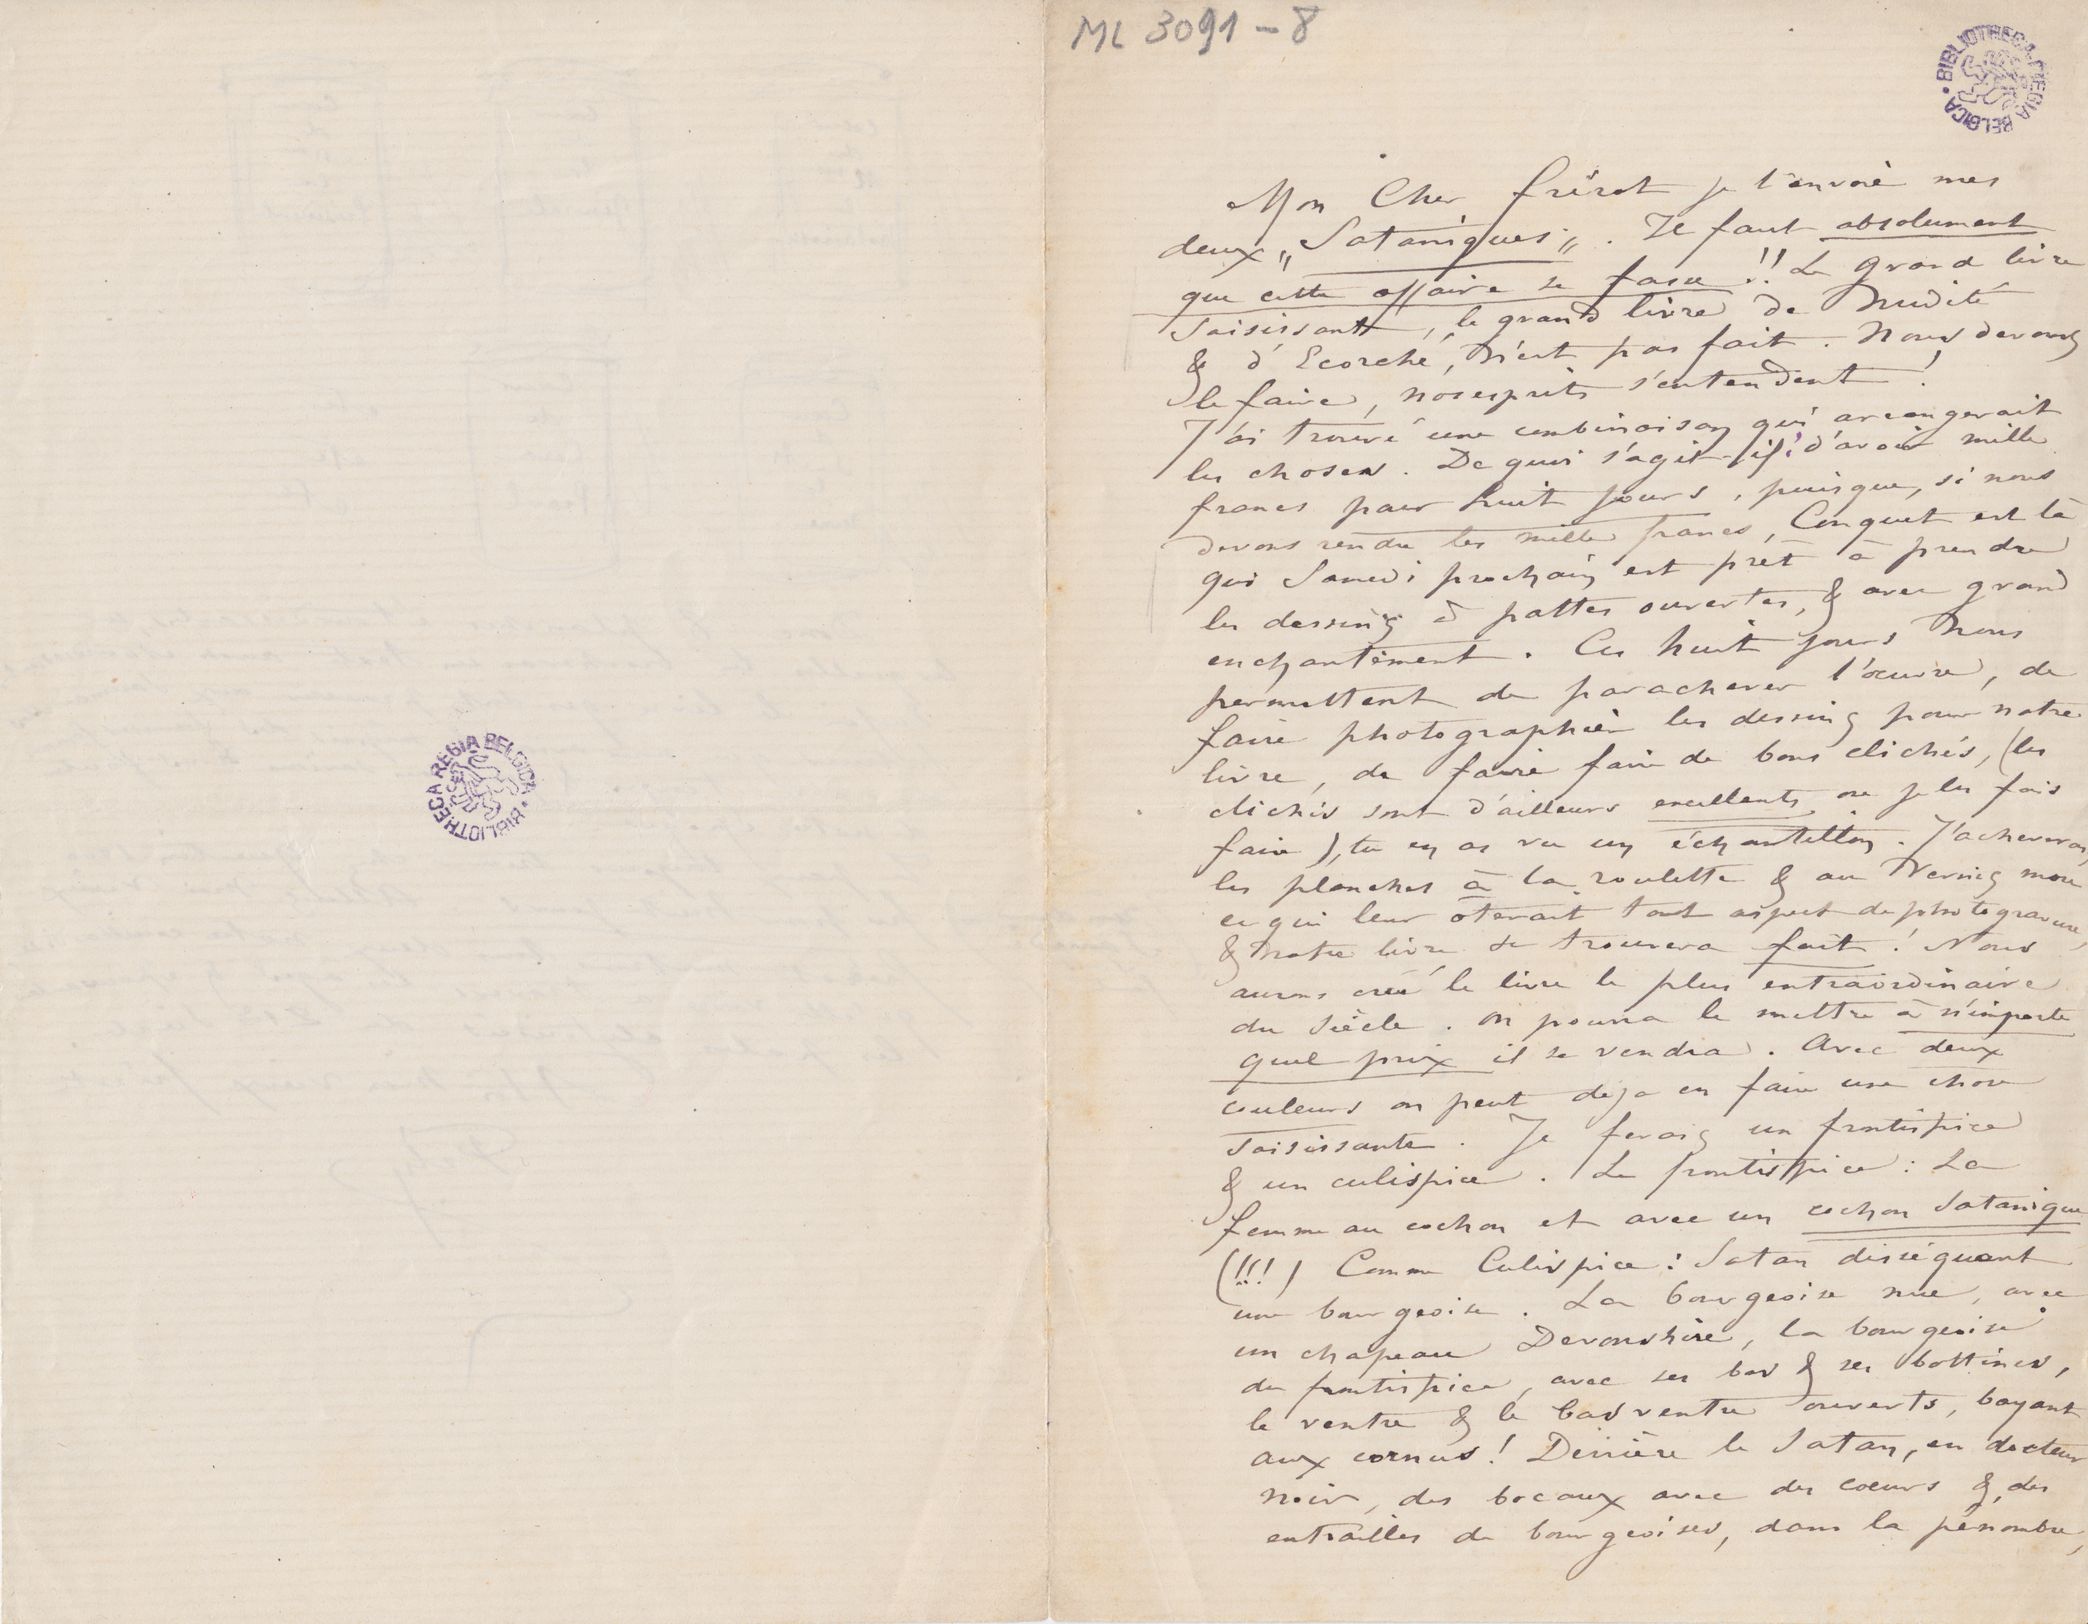 ML 3091 – 8
BIBLIOTHECA REGIA BELGICA
BIBLIOTHECA REGIA BELGICA
Mon Cher frérot je t'envoie mes
deux „Sataniques„. Il faut absolument
que cette affaire se fasse !! Le grand livre
saisissant, le grand livre de Nudité
& d'Ecorché, n'est pas fait. Nous devons
le faire, nos esprits s'entendent !
J'ai trouvé une combinaison qui arrangerait
les choses. De quoi s'agit-il, d'avoir mille
francs pour huit jours, puisque, si nous
devons rendre les mille francs, Conquet est là
qui Samedi prochain est prêt à prendre
les dessins à pattes ouvertes, & avec grand
enchantement. Ces huit jours nous
permettent de parachever l'œuvre, de
faire photographier les dessins pour notre
livre, de faire faire de bons clichés, (les
clichés sont d'ailleurs excellents où je les fais
faire), tu en as vu un échantillon. J'acheverai
les planches à la roulette & au Vernis mou
ce qui leur ôterait tout aspect de photogravure,
& notre livre se trouvera fait ! Nous
aurons créé le livre le plus extraordinaire
du siècle. On pourra le mettre à n'importe
quel prix il se vendra. Avec deux
couleurs on peut deja en faire une chose
saisissante. Je ferais un frontispice
& un culispice. Le frontispice : La
femme au cochon et avec un cochon Satanique
(!!!) Comme Culispice : Satan disséquant
une bourgeoise. La bourgeoise nue, avec
un chapeau Devonshire, la bourgeoise
du frontispice, avec ses bas & ses bottines,
le ventre & le bas ventre ouverts, bayant
aux cornus ! Derrière le Satan, en docteur
noir, des bocaux avec des coeurs & des
entrailles de bourgeoises, dans la pénombre,